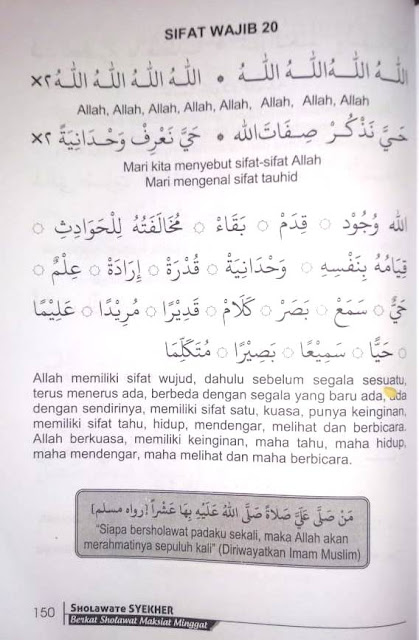 SIFAT WAJIB 20
اَللهُ اللهُ اللهُ اللهُ * اَللهُ اللهُ اللهُ اللهُ ×٢
Allah, Allah, Allah, Allah, Allah, Allah, Allah, Allah
حَيَّ نَذْكُرْ صِفَاتَ الله * حَيَّ نَعْرِفْ وَحْدَانِيَةً ×٢
Mari kita menyebut sifat-sifat Allah
Mari mengenal sifat tauhid
الله وُجُوْد ۞ قِدَمْ ۞ بَقَاءْ ۞ مُخَالَفَتُهُ لِلْحَوَادِثِ
قِيَامُهُ بِنَفْسِهِ ۞ وَحْدَانِيَةْ ۞ قُدْرَةْ ۞ إِرَادَةْ ۞ عِلْمٌ ۞
حَيٌّ ۞ سَمَعْ ۞ بَصَرْ ۞ كَلَامْ ۞ قَدِيْرًا ۞ مُرِيْدًا ۞ عَلِيْمًا
۞ حَيًّا ۞ سَمِيْعًا ۞ بَصِيْرًا ۞ مُتَكَلِّمَا
Allah memiliki sifat wujud, dahulu sebelum segala sesuatu,
terus menerus ada, berbeda dengan segala yang baru ada, ada
dengan sendirinya, memiliki sifat satu, kuasa, punya keinginan,
memiliki sifat tahu, hidup, mendengar, melihat dan berbicara.
Allah berkuasa, memiliki keinginan, maha tahu, maha hidup,
maha mendengar, maha melihat dan maha berbicara.
مَنْ صَلَّى عَلَيَّ صَلَاةً صَلَّى اللهُ عَلَيْهِ بِهَا عَشْرًا (رواه مسلم)
“Siapa bersholawat padaku sekali, maka Allah akan
merahmatinya sepuluh kali” (Diriwayatkan Imam Muslim)
150 SHOLAWATE SYEKHER
Berkat Sholawat Maksiat Minggat